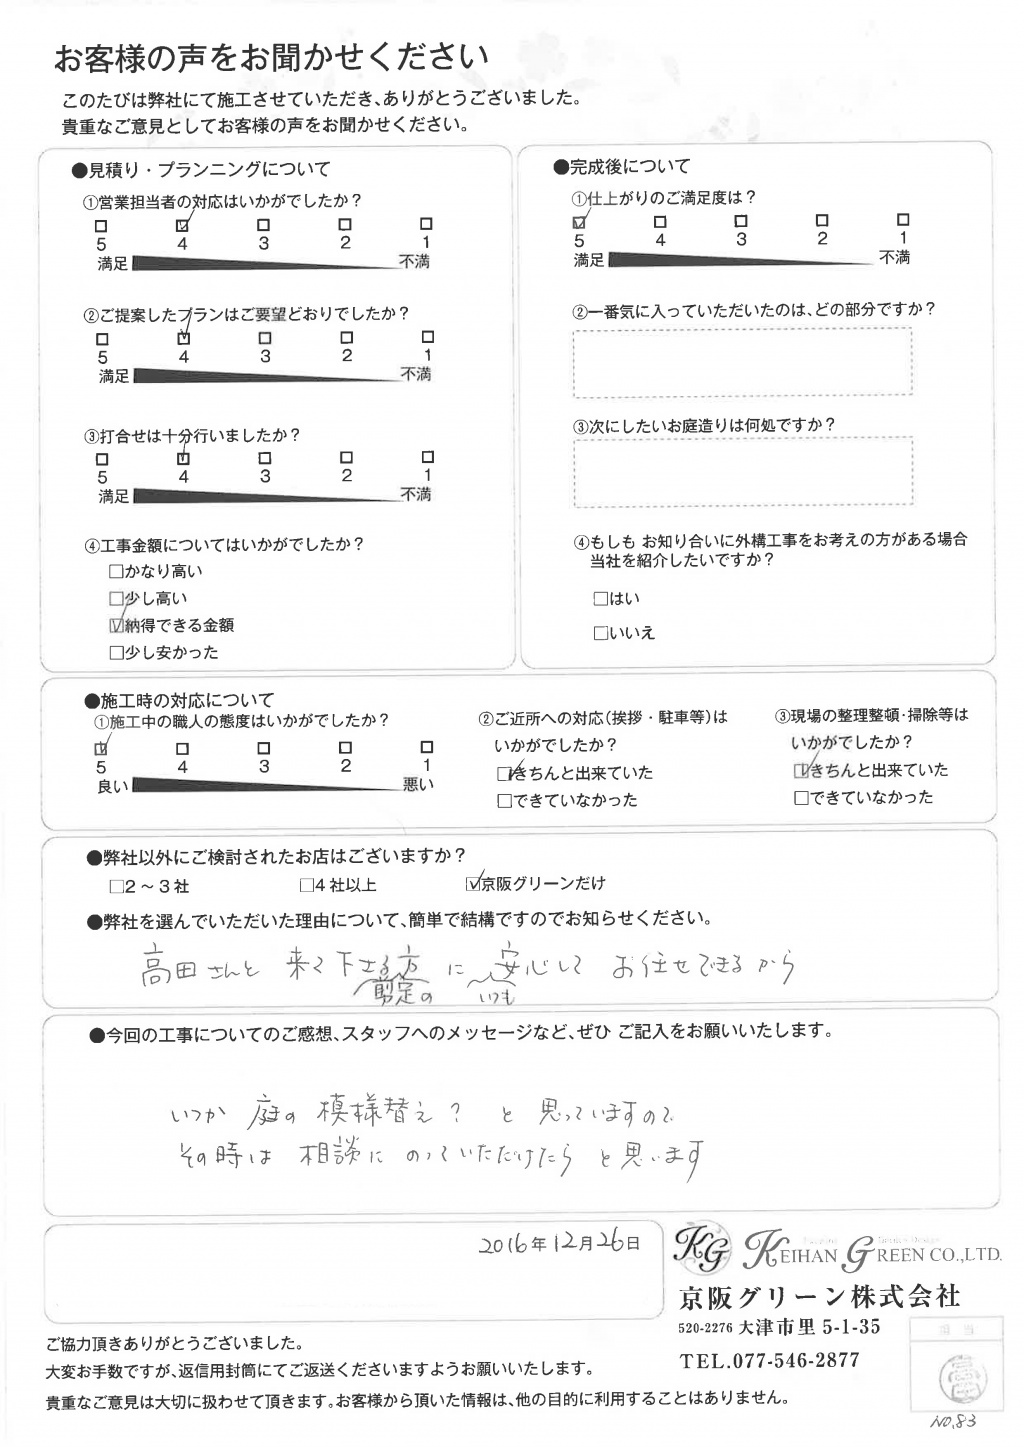 お客様の声をお聞かせください
このたびは弊社にて施工させていただき、ありがとうございました。
貴重なご意見としてお客様の声をお聞かせください。
●見積り・プランニングについて
①営業担当者の対応はいかがでしたか?
□ ☑ □ □ □
5 4 3 2 1
満足 不満
②ご提案したプランはご要望どおりでしたか?
□ ☑ □ □ □
5 4 3 2 1
満足 不満
③打合せは十分行いましたか?
□ ☑ □ □ □
5 4 3 2 1
満足 不満
④工事金額についてはいかがでしたか?
□かなり高い
□少し高い
☑納得できる金額
□少し安かった
●完成後について
①仕上がりのご満足度は?
☑ □ □ □ □
5 4 3 2 1
満足 不満
②一番気に入っていただいたのは、どの部分ですか?
③次にしたいお庭造りは何処ですか?
④もしも お知り合いに外構工事をお考えの方がある場合
当社を紹介したいですか?
□はい
□いいえ
●施工時の対応について
①施工中の職人の態度はいかがでしたか?
☑ □ □ □ □
5 4 3 2 1
良い 悪い
②ご近所への対応(挨拶・駐車等)は
いかがでしたか?
☑きちんと出来ていた
□できていなかった
③現場の整理整頓・掃除等は
いかがでしたか?
☑きちんと出来ていた
□できていなかった
●弊社以外にご検討されたお店はございますか?
□2~3社 □4社以上 ☑京阪グリーンだけ
●弊社を選んでいただいた理由について、簡単で結構ですのでお知らせください。
高田さんと 来て下さる方 に 安心して お任せできるから
剪定の いつも
●今回の工事についてのご感想、スタッフへのメッセージなど、ぜひ ご記入をお願いいたします。
いつか 庭の 模様替え? と 思っていますので
その時は 相談に のっていただけたら と思います
2016年12月26日
KG KEIHAN GREEN CO.,LTD.
京阪グリーン株式会社
520-2276 大津市里 5-1-35
TEL.077-546-2877
担当
高田
NO,83
ご協力頂きありがとうございました。
大変お手数ですが、返信用封筒にてご返送くださいますようお願いいたします。
貴重なご意見は大切に扱わせて頂きます。お客様から頂いた情報は、他の目的に利用することはありません。